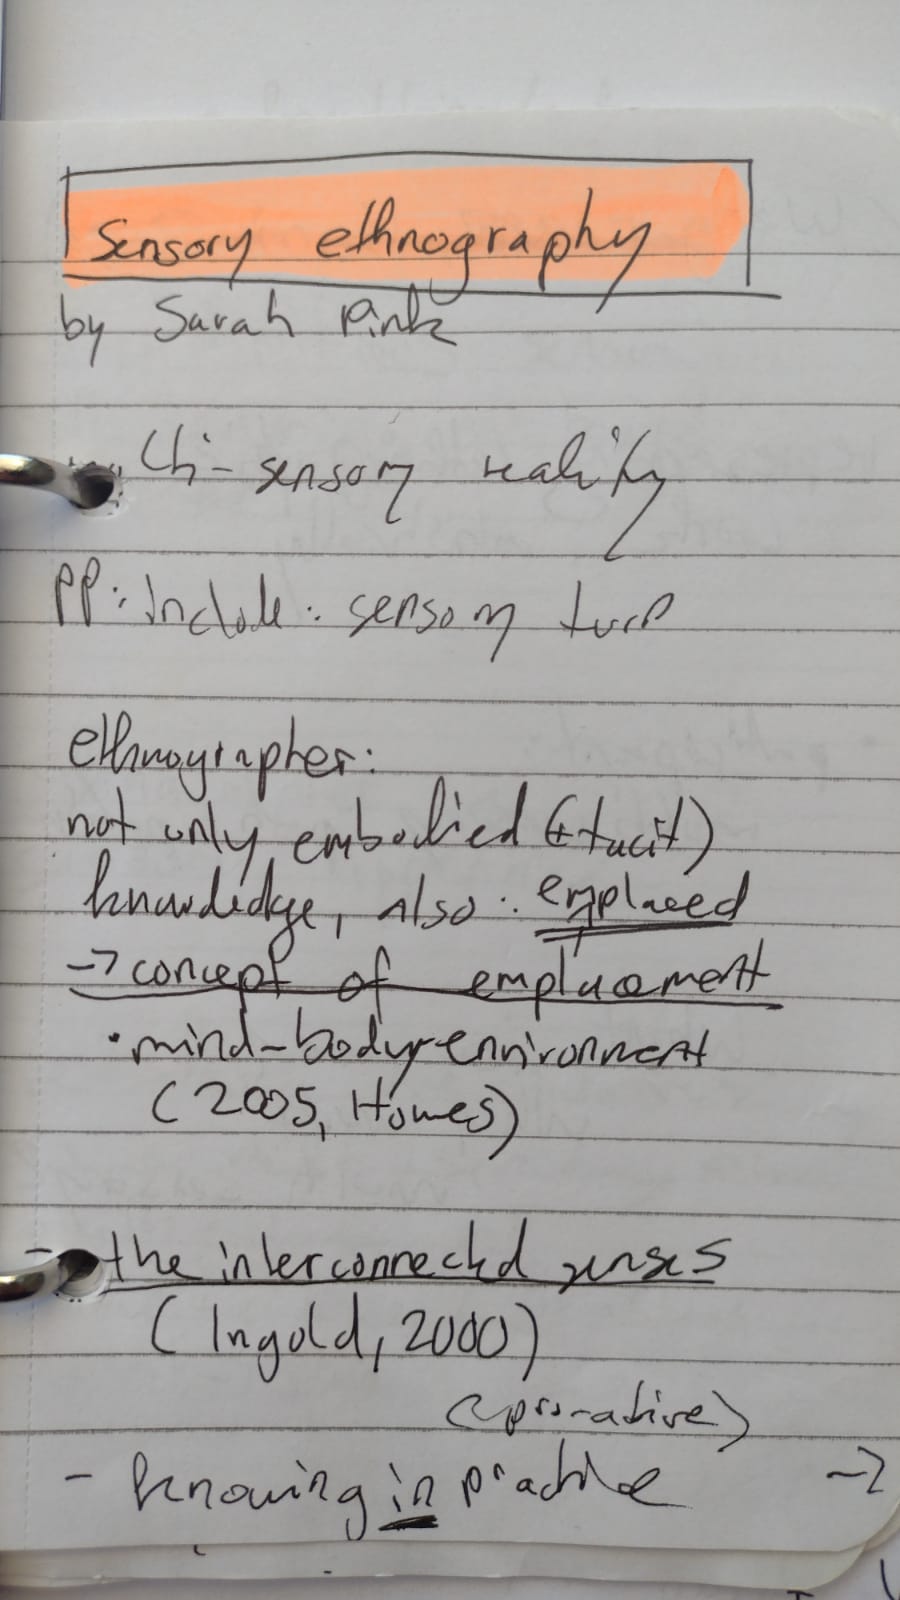 Sensory ethnography
by Sarah Pink
- sensory reality
PP: Include: sensory turn
ethnographer:
not only embodied (+tacit)
knowledge, also: emplaced
-> concept of emplacement
• mind-body-environment
(2005, Howes)
- the interconnected senses
(Ingold, 2000)
- knowing in practice ->